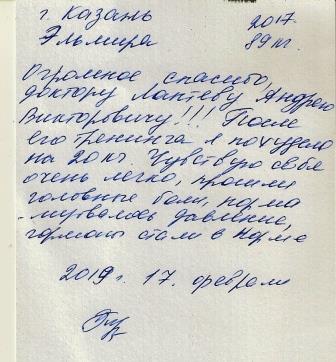 г. Казань 2017
Эльмира 89 кг.
Огромное спасибо,
доктору Лаптеву Андрею
Викторовичу!!! После
его тренинга я похудела
на 20 кг. Чувствую себя
очень легко, прошли
головные боли, норма
-лизовалось давление,
гормоны стали в норме
2019 г. 17. февраля